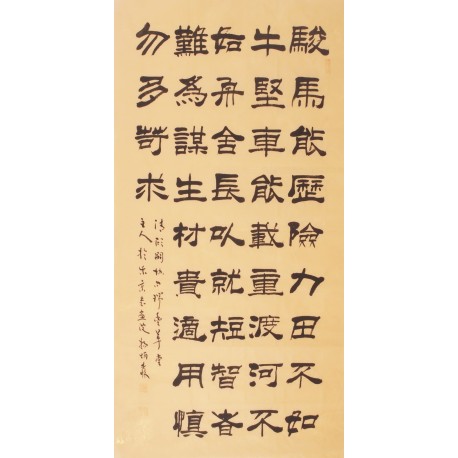 駿馬能歷險力田不如
牛堅車能載重渡河不
如舟舍長以就短智者
難為謀生材貴適用慎
勿多苛求
主人於